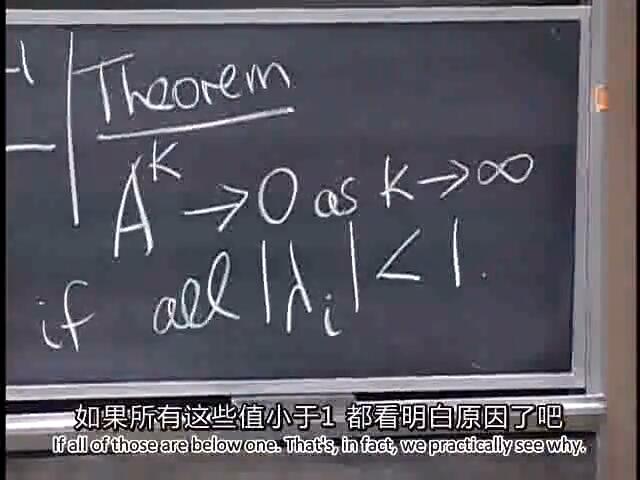 -1
Theorem
A^K → 0 as k → ∞
if all |λi| < 1.
如果所有这些值小于1 都看明白原因了吧
If all of those are below one. That's, in fact, we practically see why.